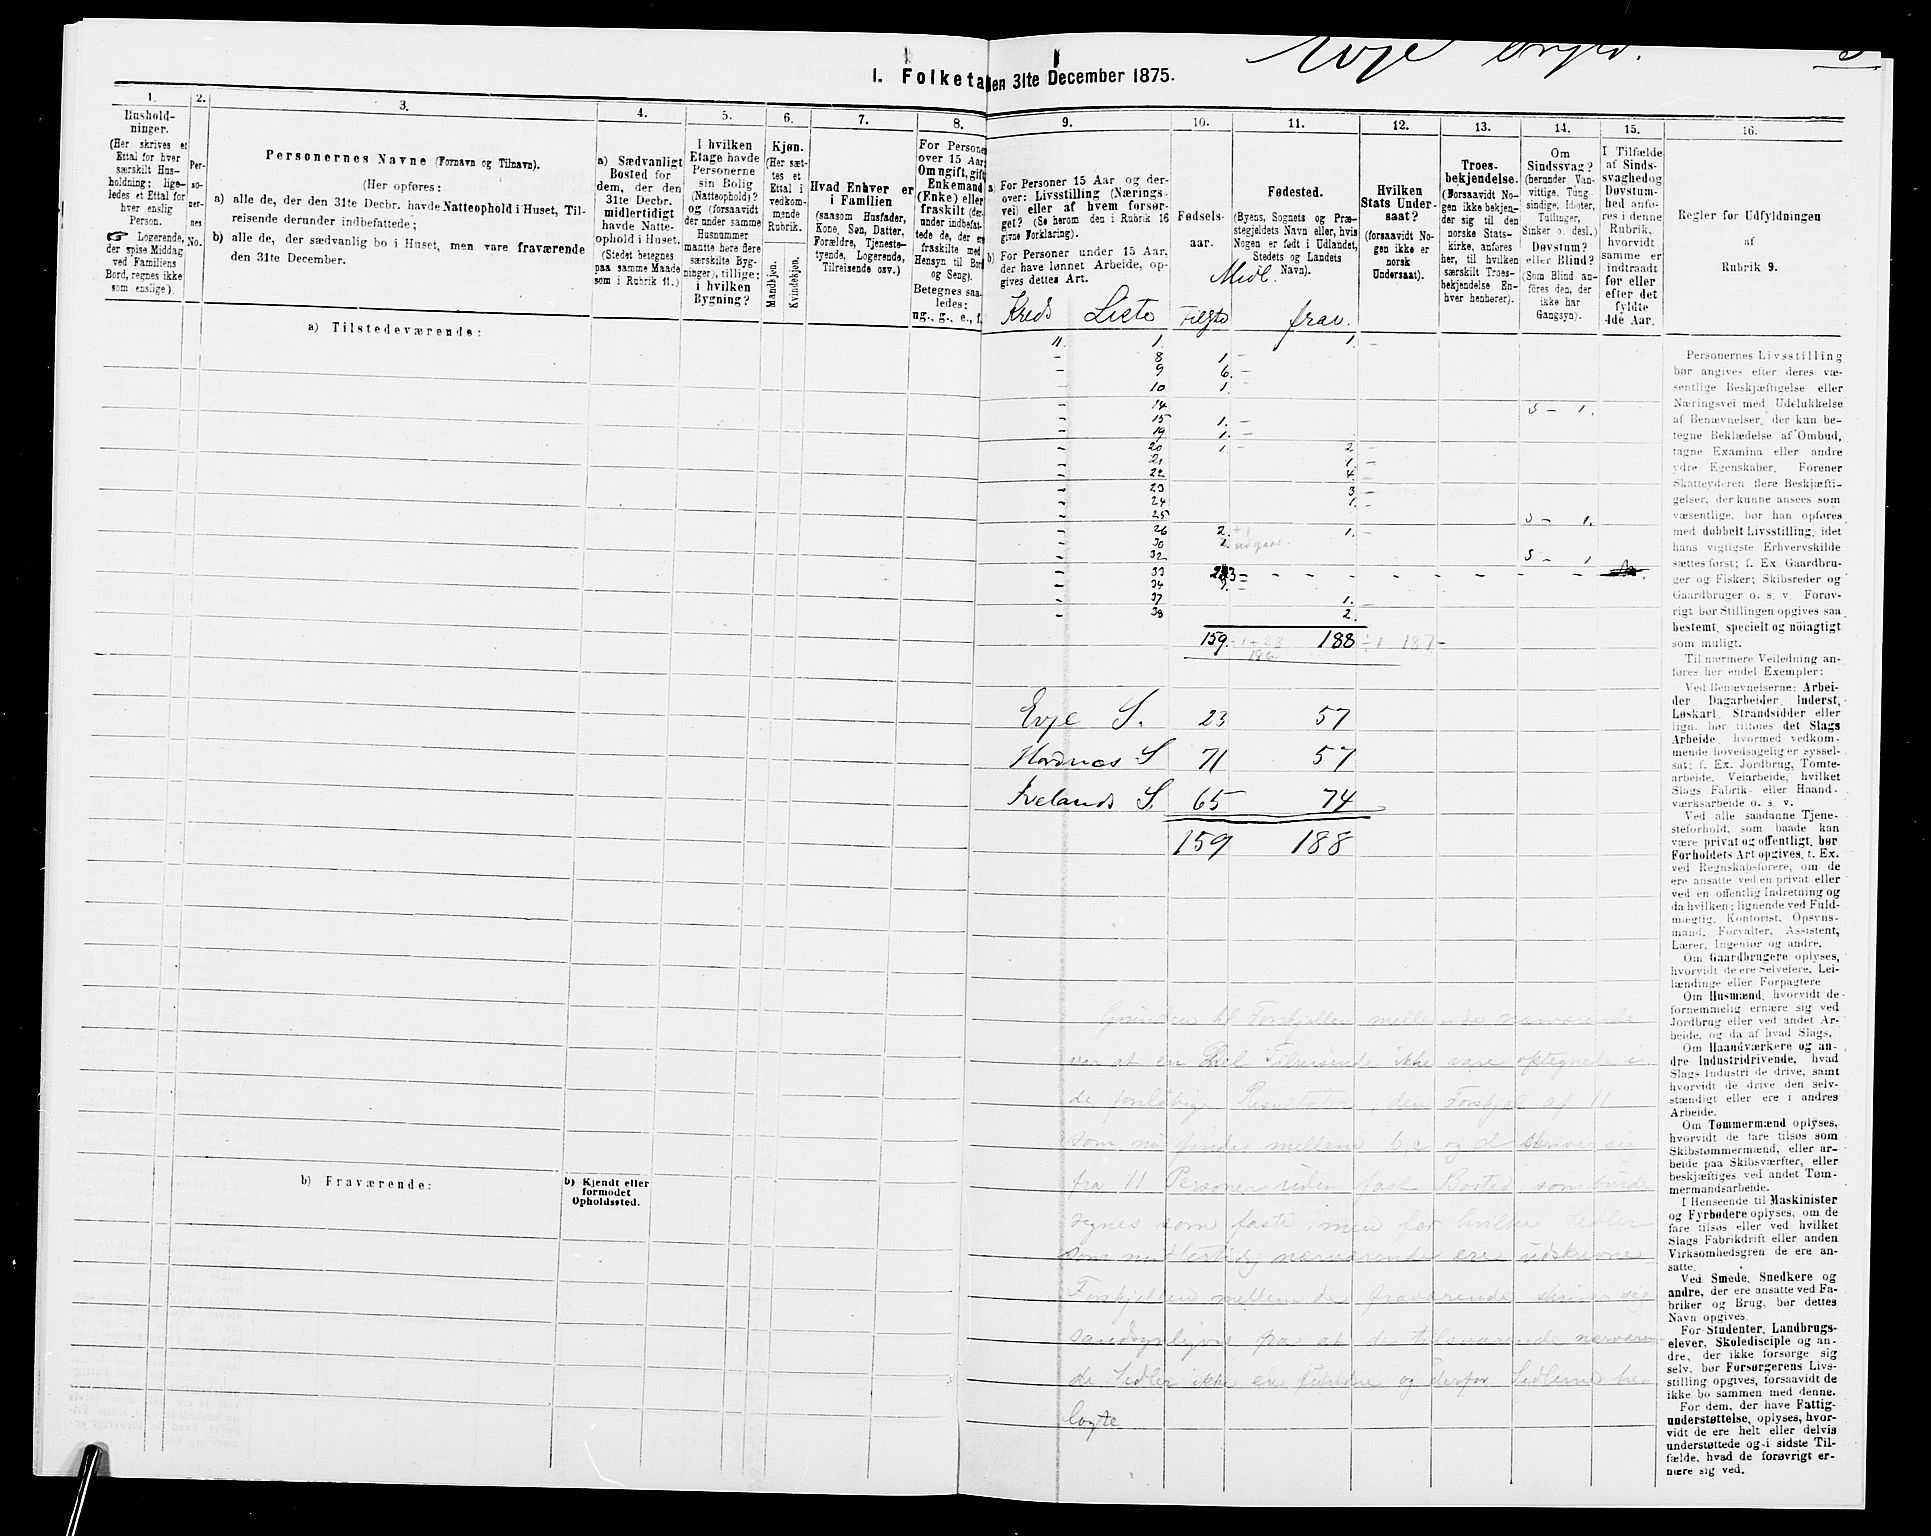 Evje
I. Folketa
den 31te December 1875.
1.
Hushold-
ninger.
(Her skrives et
Ettal for hver
særskilt Hus-
holdning; lige-
ledes et Ettal for
hver enslig
Person.
☞ Logerende,
der spise Middag
ved Familiens
Bord, regnes ikke
som enslige).
2.
Per-
so-
ner-
nes
No.
3.
Personernes Navne (Fornavn og Tilnavn).
(Her opføres:
a) alle de, der den 31te Decbr. havde Natteophold i Huset, Til-
reisende derunder indbefattede;
b) alle de, der sædvanlig bo i Huset, men vare fraværende
den 31te December.
4.
a) Sædvanligt
Bosted for
dem, der den
31te Decbr.
midlertidigt
havde Natte-
ophold i Huset.
(Stedet betegnes
paa samme Maade
som i Rubrik 11.)
5.
I hvilken
Etage havde
Personerne
sin Bolig
(Natteophold)?
og (forsaavidt
der under samme
Husnummer
maatte høre flere
særskilte Byg-
ninger), tillige:
i hvilken
Bygning?
6.
Kjøn.
(Her sæt-
tes et
Ettal i
vedkom-
mende
Rubrik.
Mandkjøn.
Kvindekjøn.
7.
Hvad Enhver er
i Familien
(saasom Husfader,
Kone, Søn, Datter,
Forældre, Tjeneste-
tyende, Logerende,
Tilreisende osv.)
8.
For Personer
over 15 Aar:
Om ugift, gift,
Enkemand
(Enke) eller
fraskilt (der-
under indbefat-
tede de, der ere
fraskilte med
Hensyn til Bord
og Seng).
Betegnes saa-
ledes:
ug., g., e., f.
9.
a) For Personer 15 Aar og der-
over: Livsstilling (Nærings-
vei) eller af hvem forsør-
get? (Se herom den i Rubrik 16
givne Forklaring).
b) For Personer under 15 Aar,
der have lønnet Arbeide, op-
gives dettes Art.
10.
Fødsels-
aar.
11.
Fødested.
(Byens, Sognets og Præ-
stegjeldets Navn eller, hvis
Nogen er født i Udlandet,
Stedets og Landets
Navn).
12.
Hvilken
Stats Under-
saat?
(forsaavidt No-
gen ikke er
norsk
Undersaat).
13.
Troes-
bekjendelse.
(Forsaavidt No-
gen ikke bekjen-
der sig til den
norske Stats-
kirke, anføres
her, til hvilken
særskilt Troes-
bekjendelse En-
hver henhører).
14.
Om
Sindssvag?
(herunder Van-
vittige, Tung-
sindige, Idioter,
Tullinger,
Sinker o. desl.)
Døvstum?
eller Blind?
(Som Blind an-
føres den, der
ikke har
Gangsyn).
15.
I Tilfælde
af Sinds-
svaghed og
Døvstum-
hed anfø-
res i denne
Rubrik,
hvorvidt
samme er
indtraadt
før eller
efter det
fyldte
4de Aar.
16.
Regler for Udfyldningen
af
Rubrik 9.
Midl.
Kreds Liste frav.
a) Tilstedeværende:
11 1 1. -
- 8 1. -
- 9 6. -
- 10 1.
- 14 S - 1.
- 15 1. -
- 19 1. -
- 20 1 - 2 -
- 21 1. -
- 22 4. -
- 23 3 -
- 24 1. -
- 25 S - 1.
- 26 2. 1. -
- 30
- 32 S - 1
- 33
- 34
- 37 1.
- 38 2.
159. 188
Evje S. 23 57
Hordnæs S 71 57
Ivelands S. 65 74
159 188
Grunden til Forskjellen mellem de nærværende
var at en Del Tilreisende ikke vare optegnede i
de foreløbige Resultater; den Forskjel af 11
som nu findes mellem b, c og d skriver sig
fra 11 Personer uden fast Bosted som burde
regnes som faste, men for hvilke Sedler
som midlertidig nærværende ere udskrevne
Forskjellen mellem de fraværende skriver sig
sandsynligvis fra at de tilsvarende nærværen-
de Sedler ikke ere fundne og derfor Sedlerne hen
lagte
b) Fraværende:
b) Kjendt eller
formodet
Opholdssted.
Personernes Livsstilling
bør angives efter deres væ-
sentlige Beskjæftigelse eller
Næringsvei med Udelukkelse
af Benævnelser, der kun be-
tegne Beklædelse af Ombud,
tagne Examina eller andre
ydre Egenskaber. Forener
Skatteyderen flere Beskjæfti-
gelser, der kunne ansees som
væsentlige, bør han opføres
med dobbelt Livsstilling, idet
hans vigtigste Erhvervskilde
sættes først; f. Ex. Gaardbru-
ger og Fisker; Skibsreder og
Gaardbruger o. s. v. Forøv-
rigt bør Stillingen opgives saa
bestemt, specielt og nöiagtigt
som muligt.
Til nærmere Veiledning an-
føres her endel Exempler:
Ved Benævnelserne: Arbei-
der, Dagarbeider, Inderst,
Løskarl, Strandsidder eller
lign. bør tilføies det Slags
Arbeide, hvormed vedkom-
mende hovedsagelig er syssel-
sat; f. Ex. Jordbrug, Tomte-
arbeide, Veiarbeide, hvilket
Slags Fabrik- eller Haand-
værksarbeide o. s. v.
Ved alle saadanne Tjene-
steforhold, som baade kan
være privat og offentligt, bør
Forholdets Art opgives, t. Ex.
ved Regnskabsførere, om de
ere ansatte ved en privat eller
ved en offentlig Indretning og
da hvilken; lignende ved Fuld-
mægtig, Kontorist, Opsyns-
mand, Forvalter, Assistent,
Lærer, Ingeniør og andre.
Om Gaardbrugere oplyses,
hvorvidt de ere Selveiere, Lei-
lændinge eller Forpagtere
Om Husmænd, hvorvidt de
fornemmelig ernære sig ved
Jordbrug eller ved andet Ar-
beide, og da af hvad Slags.
Om Haandværkere og an-
dre Industridrivende, hvad
Slags Industri de drive, samt
hvorvidt de drive den selv-
stændigt eller ere i andres
Arbeide.
Om Tømmermænd oplyses,
hvorvidt de fare tilsøs som
Skibstømmermænd, eller ar-
beide paa Skibsværfter, eller
beskjæftiges ved andet Tøm-
mermandsarbeide.
I Henseende til Maskinister
og Fyrbødere oplyses, om de
fare tilsøs eller ved hvilket
Slags Fabrikdrift eller anden
Virksomhedsgren de ere an-
satte.
Ved Smede, Snedkere og
andre, der ere ansatte ved Fa-
briker og Brug, bør dettes
Navn opgives.
For Studenter, Landbrugs-
elever, Skoledisciple og an-
dre, der ikke forsørge sig
selv, bør Forsørgerens Livs-
stilling opgives, forsaavidt de
ikke bo sammen med denne.
For dem, der have Fattig-
understøttelse, oplyses, hvor-
vidt de ere helt eller delvis
understøttede og i sidste Til-
fælde, hvad de forøvrigt er-
nære sig ved.